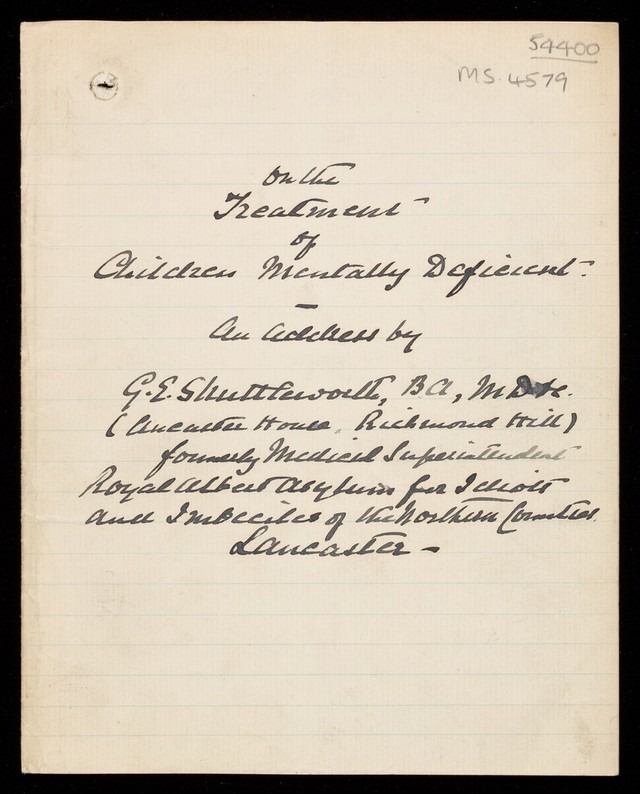 54400
MS. 4579
On the
Treatment
of
Children Mentally Deficient.
—
An Address by
G. E. Shuttleworth, BA, M.D. &c.
(Ancaster House, Richmond Hill)
formerly Medical Superintendent
Royal Albert Asylum for Idiots
and Imbeciles of the Northern Counties.
Lancaster —